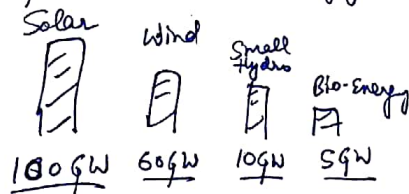 Solar Wind Small Hydro Bio-Energy
100GW 60GW 10GW 5GW